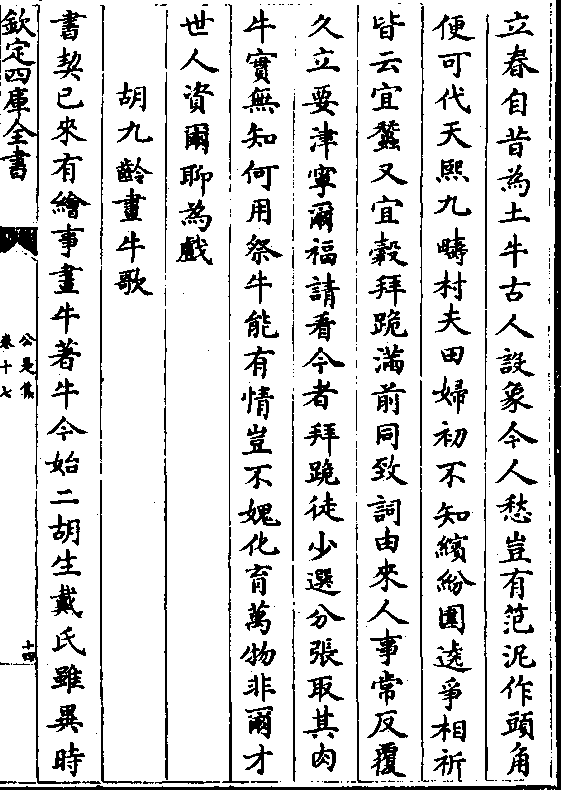 立春自昔為土牛古人設象今人愁豈有笵泥作頭角
便可代天熙九疇村夫田婦初不知繽紛圍遶爭相祈
皆云宜蠶又宜穀拜跪滿前同致詞由來人事常反覆
久立要津寧爾福請看今者拜跪徒少選分張取其肉
牛實無知何用祭牛能有情豈不媿化育萬物非爾才
世人資爾聊為戲
胡九齡畫牛歌
書契已來有繪事畫牛著牛今始二胡生戴氏雖異時
欽定四庫全書
公是集
卷十七
十四